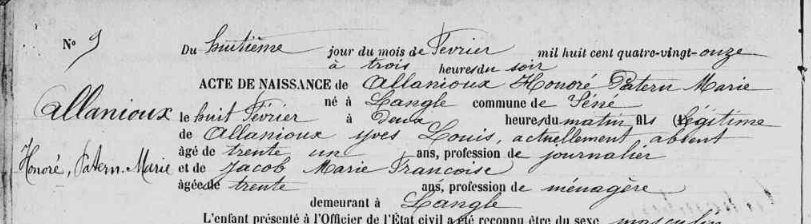 N° 9
Du huitième jour du mois de Février mil huit cent quatre-vingt-onze
à trois heures du soir
ACTE DE NAISSANCE de Allanioux Honoré Patern Marie
né à Langle commune de Séné
Allanioux
le huit Février à deux heures du matin fils (1) légitime
de Allanioux yves Louis, actuellement absent
Honoré, Patern-Marie
âgé de trente un ans, profession de journalier
et de Jacob Marie Francoise
âgée de trente ans, profession de ménagère
demeurant à Langle
L'enfant présenté à l'Officier de l'État civil a été reconnu être du sexe masculin